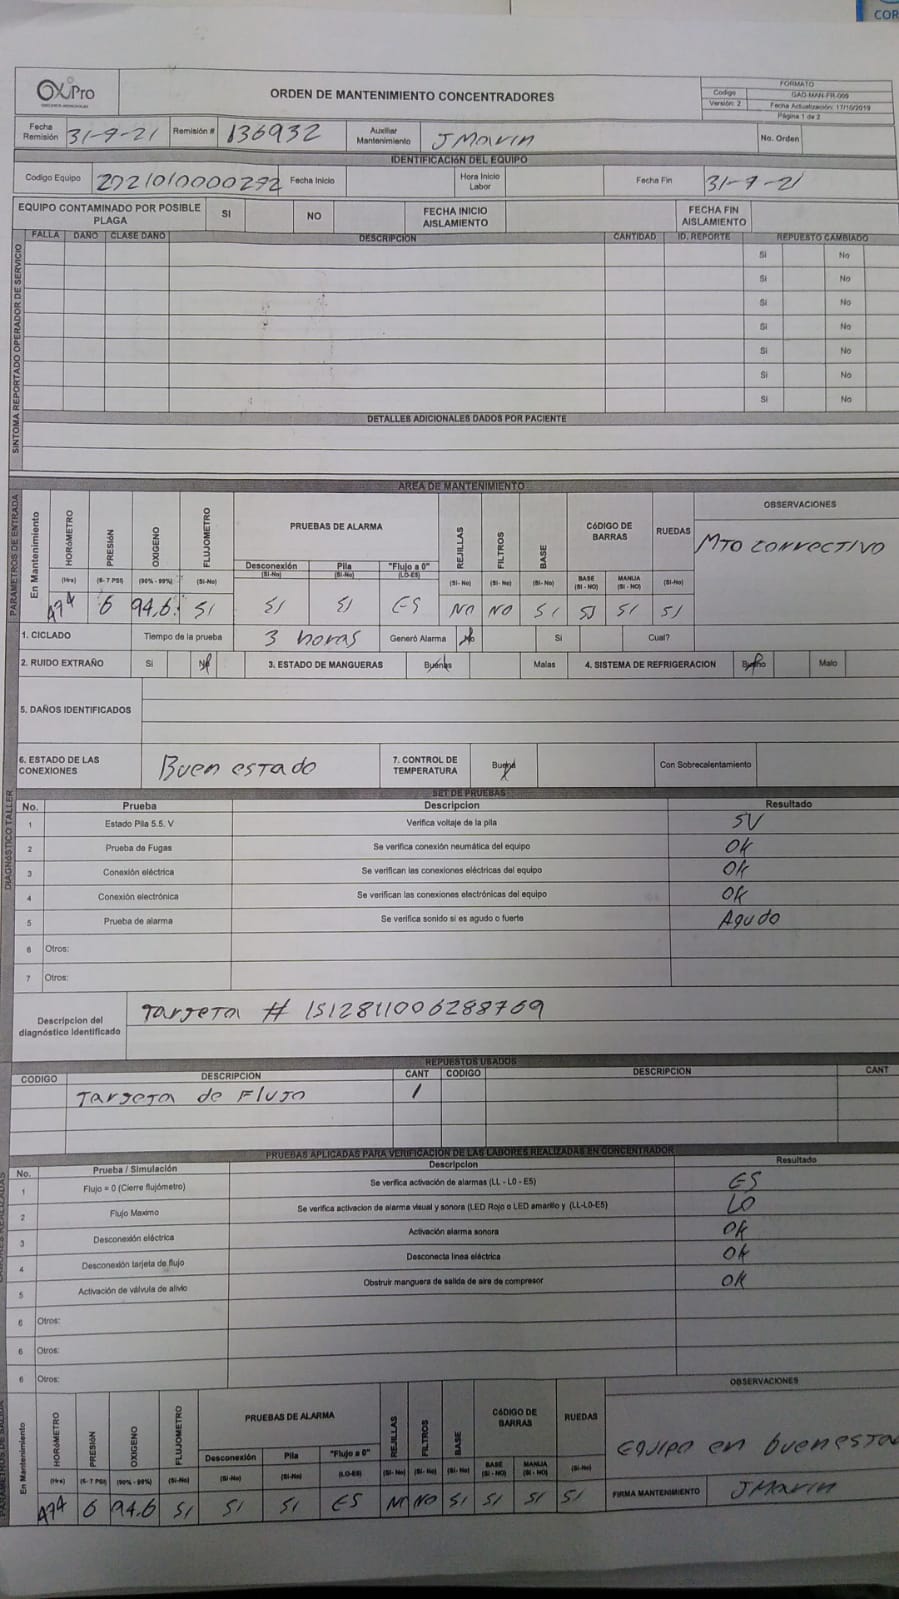 COR
OxiPro
ORDEN DE MANTENIMIENTO CONCENTRADORES
FORMATO
Codigo GAO-MAN-FR-009
Versión: 2 Fecha Actualización: 17/10/2019
Página 1 de 2
Fecha Remisión 31-7-21 Remisión # 136932 Auxiliar Mantenimiento J Marin No. Orden
IDENTIFICACIÓN DEL EQUIPO
Codigo Equipo 2021010000292 Fecha Inicio Hora Inicio Labor Fecha Fin 31-7-21
EQUIPO CONTAMINADO POR POSIBLE PLAGA SI NO FECHA INICIO AISLAMIENTO FECHA FIN AISLAMIENTO
SINTOMA REPORTADO OPERADOR DE SERVICIO
FALLA DAÑO CLASE DAÑO DESCRIPCIÓN CANTIDAD ID. REPORTE REPUESTO CAMBIADO
Si No
Si No
Si No
Si No
Si No
Si No
Si No
DETALLES ADICIONALES DADOS POR PACIENTE
AREA DE MANTENIMIENTO
PARAMETROS DE ENTRADA
En Mantenimiento HORÓMETRO PRESIÓN OXIGENO FLUJOMETRO PRUEBAS DE ALARMA REJILLAS FILTROS BASE CÓDIGO DE BARRAS RUEDAS OBSERVACIONES
Desconexión (Si-No) Pila (Si-No) "Flujo a 0" (LO-E5)
(Hrs) (6- 7 PSI) (90% - 99%) (Si-No) (Si- No) (Si- No) (Si- No) BASE (SI - NO) MANIJA (SI - NO) (Si-No)
MTO correctivo
474 6 94,6. SI SI SI ES NO NO SI SI SI SI
1. CICLADO Tiempo de la prueba 3 horas Generó Alarma No Si Cual?
2. RUIDO EXTRAÑO Si No 3. ESTADO DE MANGUERAS Buenas Malas 4. SISTEMA DE REFRIGERACION Bueno Malo
5. DAÑOS IDENTIFICADOS
6. ESTADO DE LAS CONEXIONES Buen estado 7. CONTROL DE TEMPERATURA Buena Con Sobrecalentamiento
DIAGNÓSTICO TALLER
SET DE PRUEBAS
No. Prueba Descripcion Resultado
1 Estado Pila 5.5. V Verifica voltaje de la pila 5V
2 Prueba de Fugas Se verifica conexión neumática del equipo OK
3 Conexión eléctrica Se verifican las conexiones eléctricas del equipo OK
4 Conexión electrónica Se verifican las conexiones electrónicas del equipo OK
5 Prueba de alarma Se verifica sonido si es agudo o fuerte Agudo
6 Otros:
7 Otros:
Descripcion del diagnóstico Identificado Targeta # 1S12811006288769
REPUESTOS USADOS
CODIGO DESCRIPCION CANT CODIGO DESCRIPCION CANT
Targeta de Flujo 1
PRUEBAS APLICADAS PARA VERIFICACIÓN DE LAS LABORES REALIZADAS EN CONCENTRADOR
No. Prueba / Simulación Descripcion Resultado
1 Flujo = 0 (Cierre flujómetro) Se verifica activación de alarmas (LL - L0 - E5) ES
2 Flujo Maximo Se verifica activacion de alarma visual y sonora (LED Rojo o LED amarillo y (LL-L0-E5) LO
3 Desconexión eléctrica Activación alarma sonora OK
4 Desconexión tarjeta de flujo Desconecta linea eléctrica OK
5 Activación de válvula de alivio Obstruir manguera de salida de aire de compresor OK
6 Otros:
6 Otros:
6 Otros:
En Mantenimiento HORÓMETRO PRESIÓN OXIGENO FLUJOMETRO PRUEBAS DE ALARMA REJILLAS FILTROS BASE CÓDIGO DE BARRAS RUEDAS OBSERVACIONES
Desconexión (Si-No) Pila (Si-No) "Flujo a 0" (LO-E5)
(Hrs) (6- 7 PSI) (90% - 99%) (Si-No) (Si- No) (Si- No) (Si- No) BASE (SI - NO) MANIJA (SI - NO) (Si-No)
Equipo en buen esta
474 6 94.6 SI SI SI ES NO SI SI SI SI
FIRMA MANTENIMIENTO J Marin